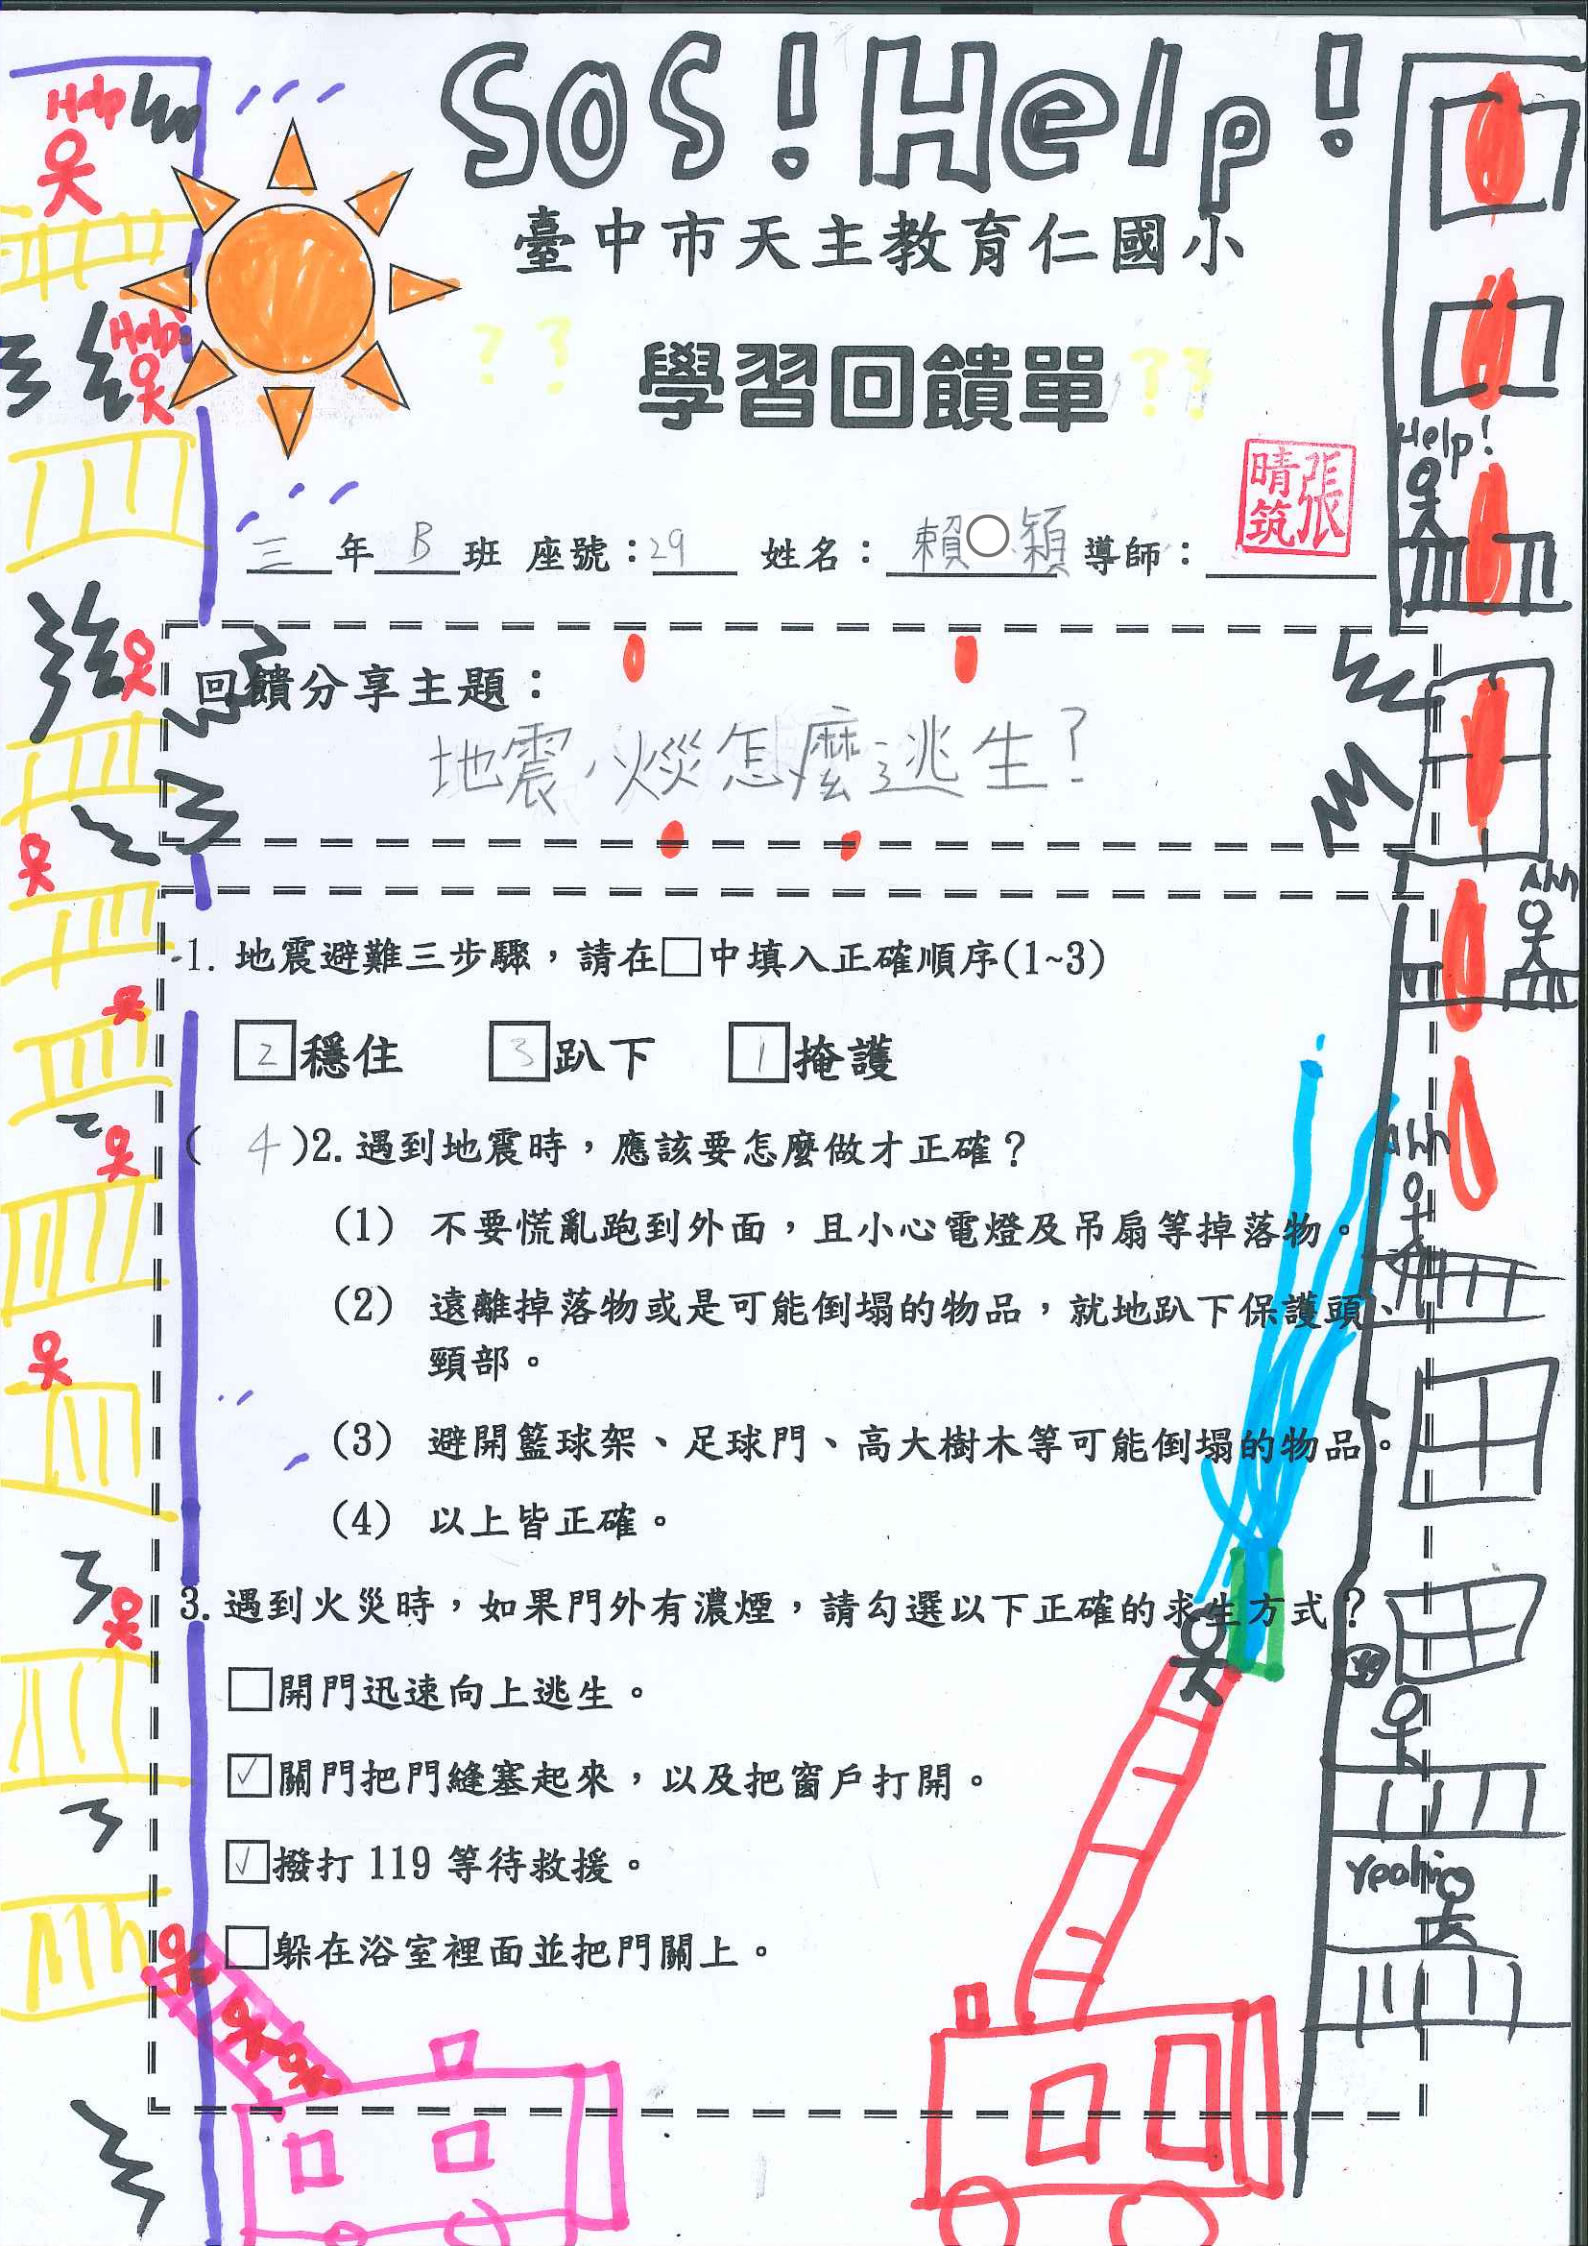 SOS! Help!
臺中市天主教育仁國小
?? 學習回饋單 ??
三年B班 座號:29 姓名:賴○穎 導師:
張晴筑
回饋分享主題:
地震、火災怎麼逃生?
1. 地震避難三步驟,請在□中填入正確順序(1~3)
2穩住 3趴下 1掩護
( 4 )2.遇到地震時,應該要怎麼做才正確?
(1) 不要慌亂跑到外面,且小心電燈及吊扇等掉落物。
(2) 遠離掉落物或是可能倒塌的物品,就地趴下保護頭、
頸部。
(3) 避開籃球架、足球門、高大樹木等可能倒塌的物品。
(4) 以上皆正確。
3.遇到火災時,如果門外有濃煙,請勾選以下正確的求生方式?
□開門迅速向上逃生。
☑關門把門縫塞起來,以及把窗戶打開。
☑撥打 119 等待救援。
□躲在浴室裡面並把門關上。
Help
Help!
Help!